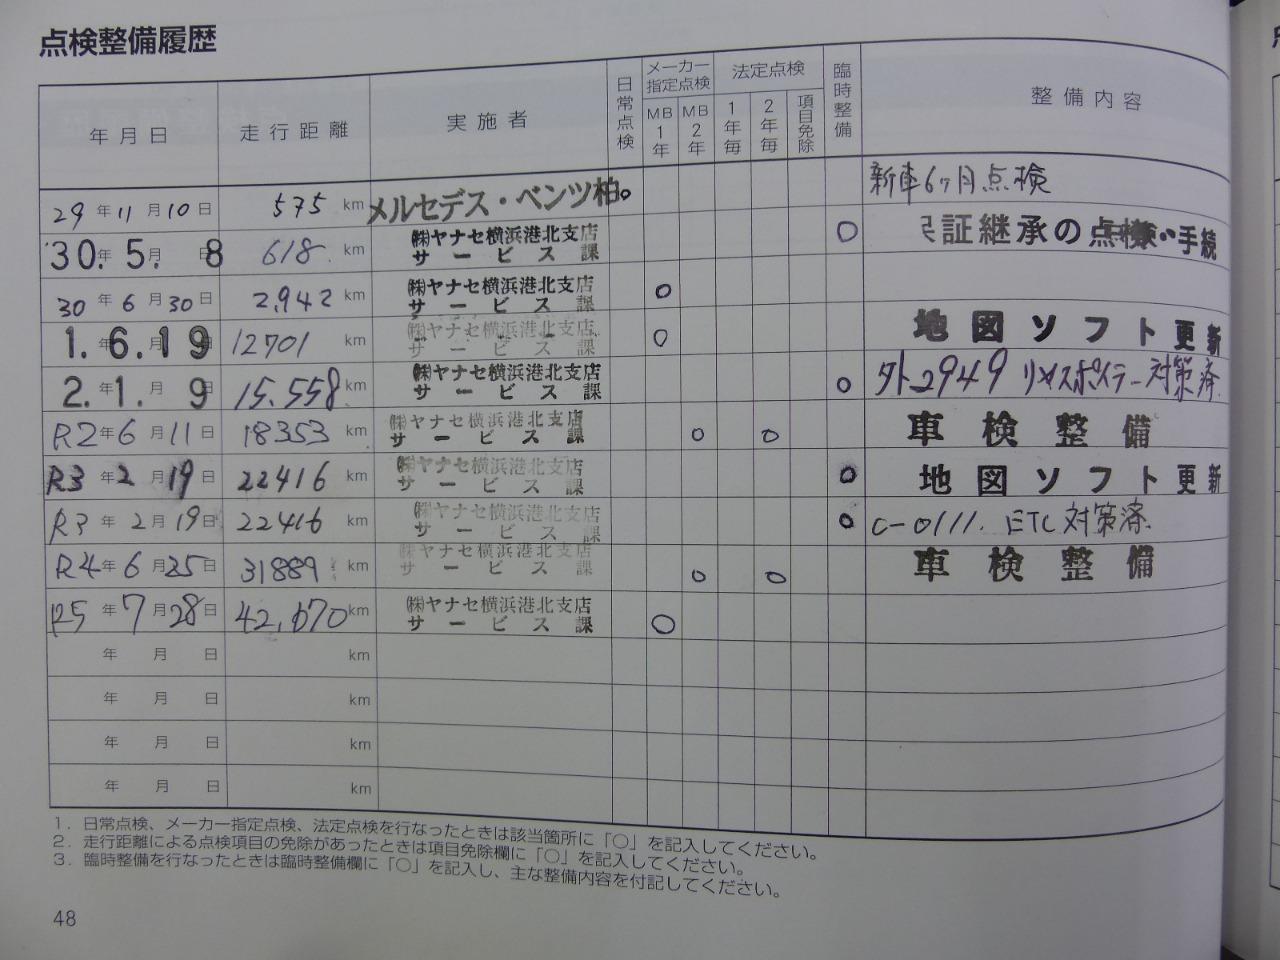 点検整備履歴
年月日 走行距離 実施者 日常点検 メーカー指定点検 MB1年 MB2年 法定点検 1年毎 2年毎 項目免除 臨時整備 整備内容
29年11月10日 575 km メルセデス・ベンツ柏 ○ 新車6ヶ月点検
'30年5月8日 618 km ㈱ヤナセ横浜港北支店 サービス課 ○ 証継承の点検・手続
30年6月30日 2,942 km ㈱ヤナセ横浜港北支店 サービス課 ○
1.年6.月19日 12701 km ㈱ヤナセ横浜港北支店 サービス課 ○ 地図ソフト更新
2.年1.月9日 15.558 km ㈱ヤナセ横浜港北支店 サービス課 ○ 2949 対策済
R2年6月11日 18353 km ㈱ヤナセ横浜港北支店 サービス課 ○ ○ 車検整備
R3年2月19日 22416 km ㈱ヤナセ横浜港北支店 サービス課 ○ 地図ソフト更新
R3年2月19日 22416 km ㈱ヤナセ横浜港北支店 サービス課 ○ C-0111. ETC対策済
R4年6月25日 31889 km ㈱ヤナセ横浜港北支店 サービス課 ○ ○ 車検整備
R5年7月28日 42,670 km ㈱ヤナセ横浜港北支店 サービス課 ○
年 月 日 km
年 月 日 km
年 月 日 km
年 月 日 km
1. 日常点検、メーカー指定点検、法定点検を行なったときは該当箇所に「○」を記入してください。
2. 走行距離による点検項目の免除があったときは項目免除欄に「○」を記入してください。
3. 臨時整備を行なったときは臨時整備欄に「○」を記入し、主な整備内容を付記してください。
48